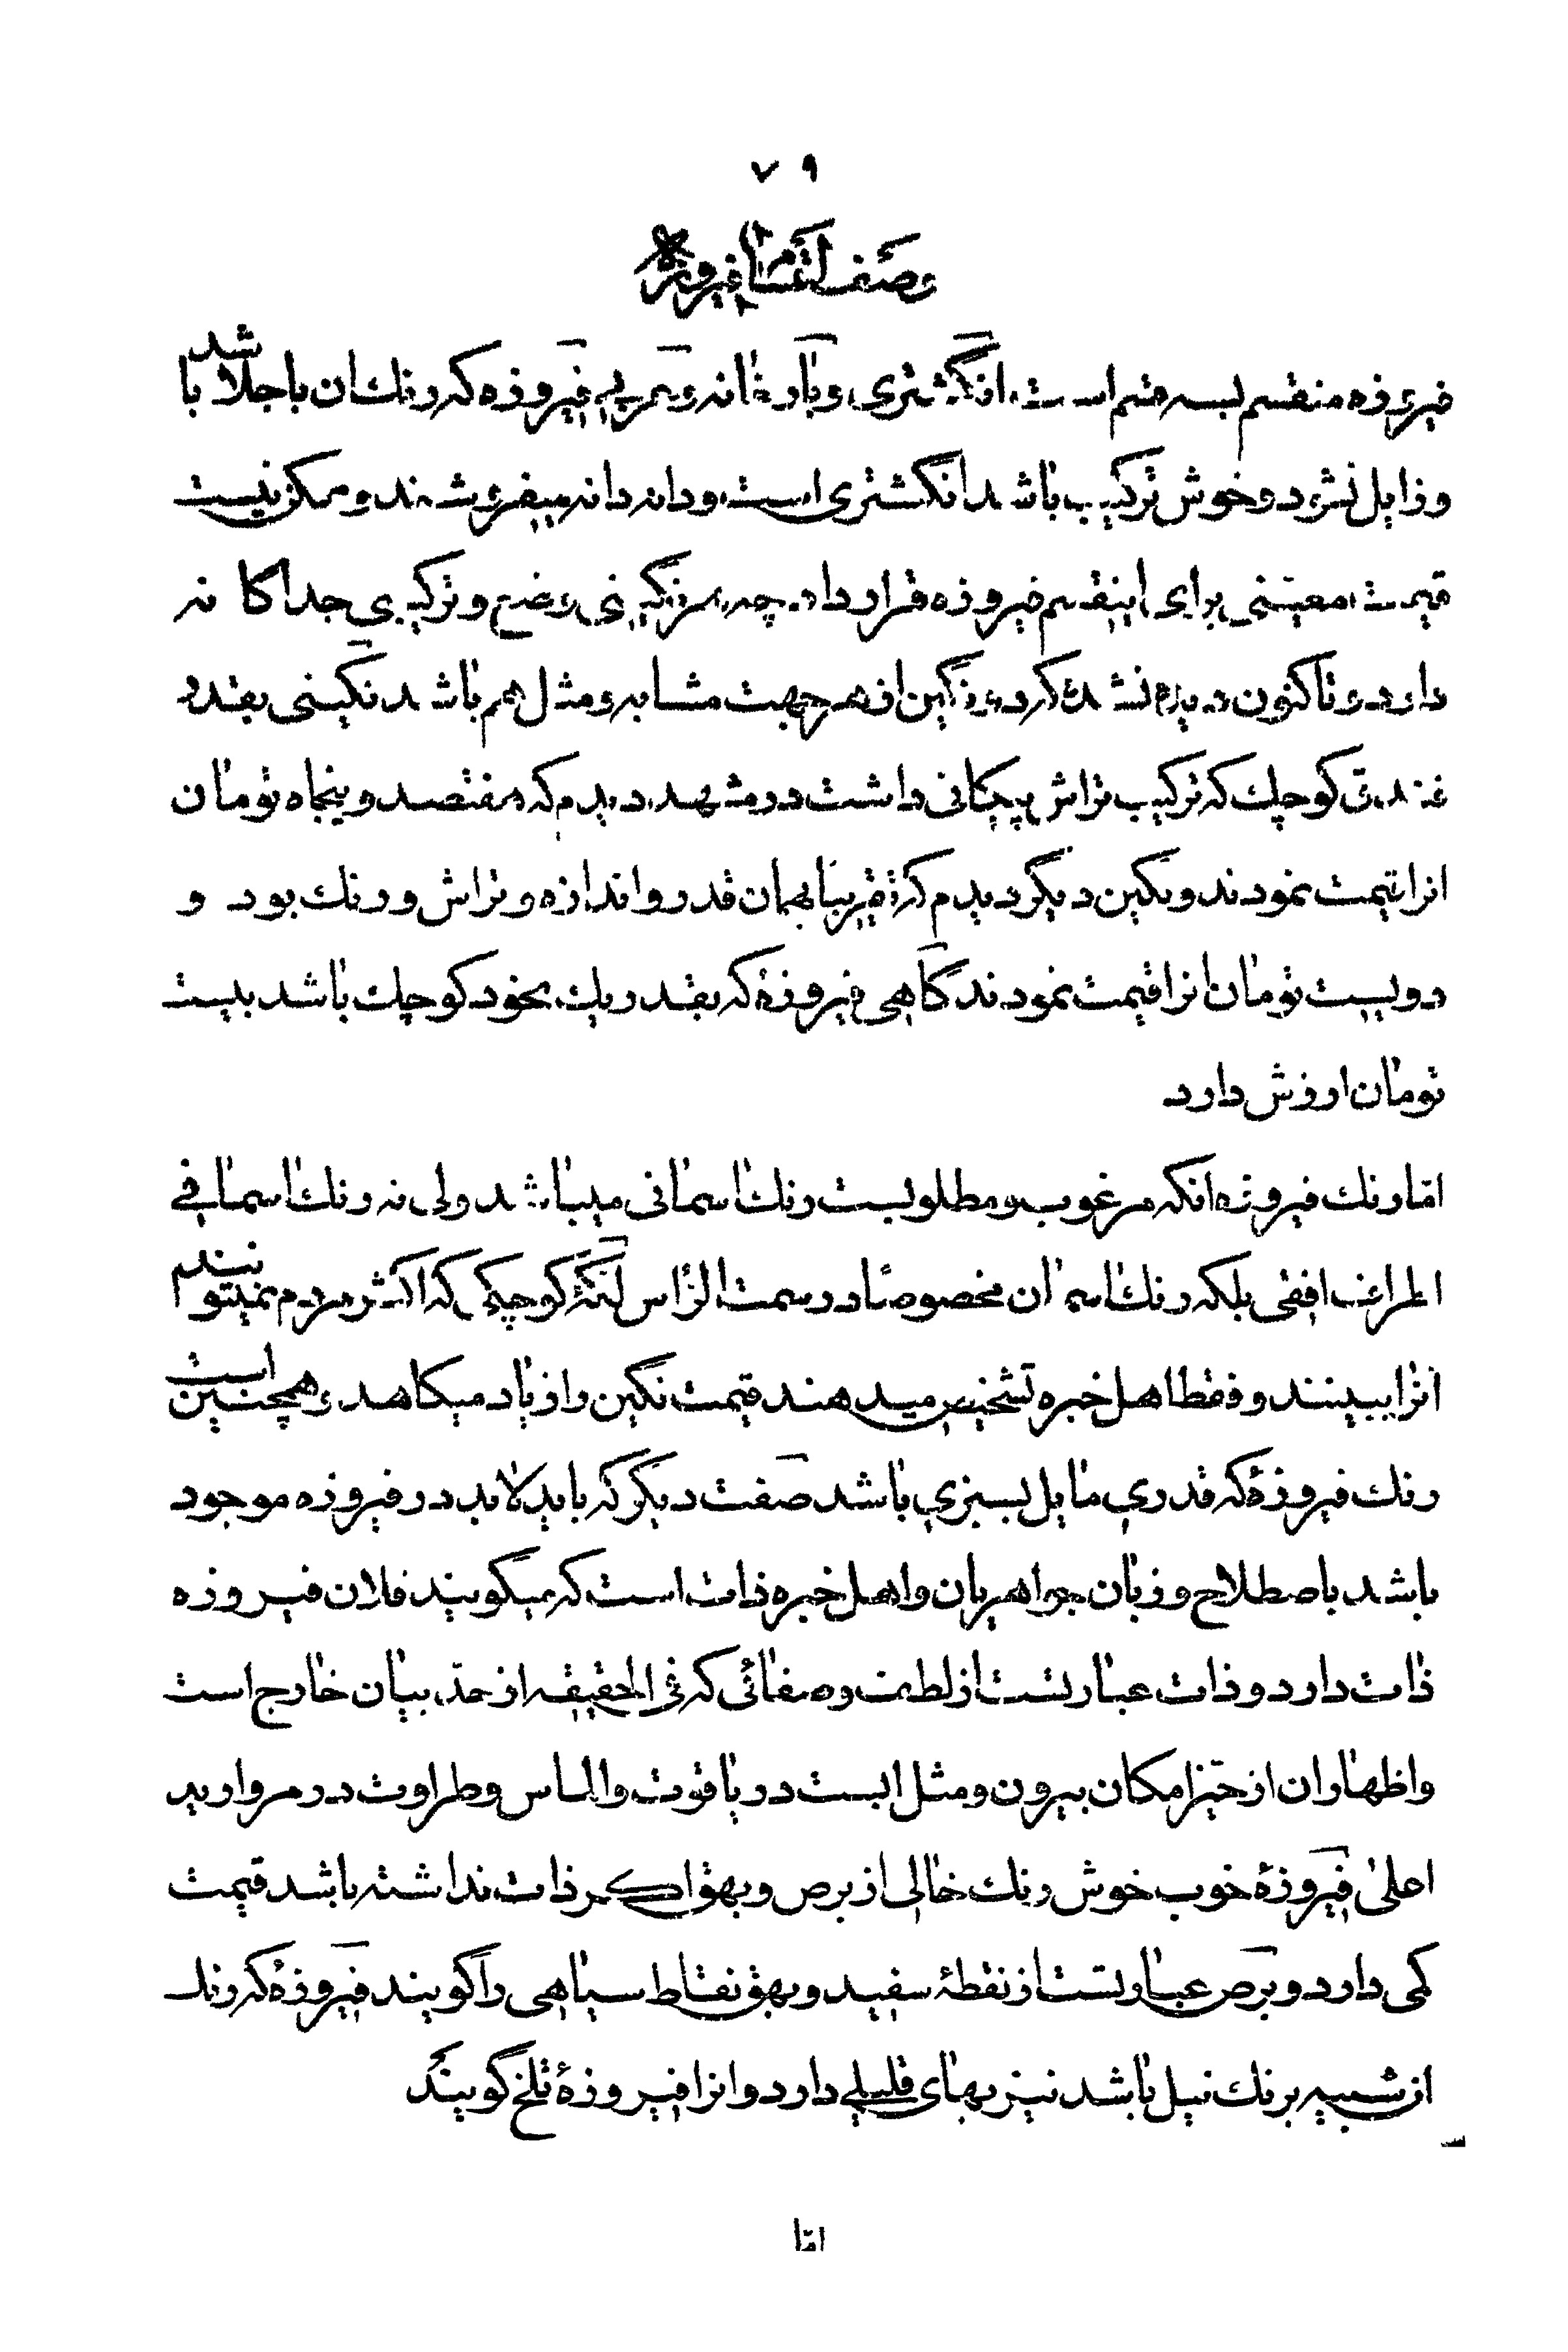 ٧٩
وصف اقسام فیروزه
فیروزه منقسم بسه قسم است انگشتری و بارخانه و عربی فیروزه که رنك ان با جلا باشد
و زایل نشود و خوش ترکیب باشد انگشتری است و دانه دانه میفروشند و ممکن نیست
قیمت معینی برای اینقسم فیروزه قرار داد چه هر نگینی وضع و ترکیبی جداکانه
دارد و تاکنون دیده نشده که دو نگین از هر جهت مشابه و مثل هم باشد نگینی بقدر
فندقی کوچك که ترکیب تراش پیچکانی داشت در مشهد دیدم که هفتصد و پنجاه تومان
انرا قیمت نمودند و نگین دیگر دیدم که تقریبا بهمان قدر و اندازه و تراش و رنك بود و
دویست تومان انرا قیمت نمودند گاهی فیروزهٔ که بقدر یك نخود کوچك باشد بیست
تومان ارزش دارد
امّا رنك فیروزه انکه مرغوب و مطلوبست رنك اسمانی میباشد ولی نه رنك اسمان فی
افقی بلکه رنك اسمان مخصوصًا در سمت الرّاس لکهٔ کوچکی که اکثر مردم نمیتوانند
انرا ببینند و فقط اهل خبره تشخیص میدهند قیمت نگین را زیاد میکاهد و همچنین است
رنك فیروزهٔ که قدری مایل بسبزی باشد صفت دیگر که باید لابد در فیروزه موجود
باشد باصطلاح و زبان جواهریان و اهل خبره ذات است که میگویند فلان فیروزه
ذات دارد و ذات عبارتست از لطافت و صفائی که فی الحقیقه از حدّ بیان خارج است
و اظهار ان از حیّز امکان بیرون و مثل ابست در یاقوت و الماس و طراوت در مروارید
اعلی فیروزهٔ خوب خوش رنك خالی از برص و بهق اگر ذات نداشته باشد قیمت
کمی دارد و برص عبارتست از نقطهٔ سفید و بهق نقاط سیاهی را گویند فیروزهٔ که رنك
ان شبیه برنك نیل باشد نیز بهای قلیلی دارد و انرا فیروزهٔ تلخ گویند
امّا